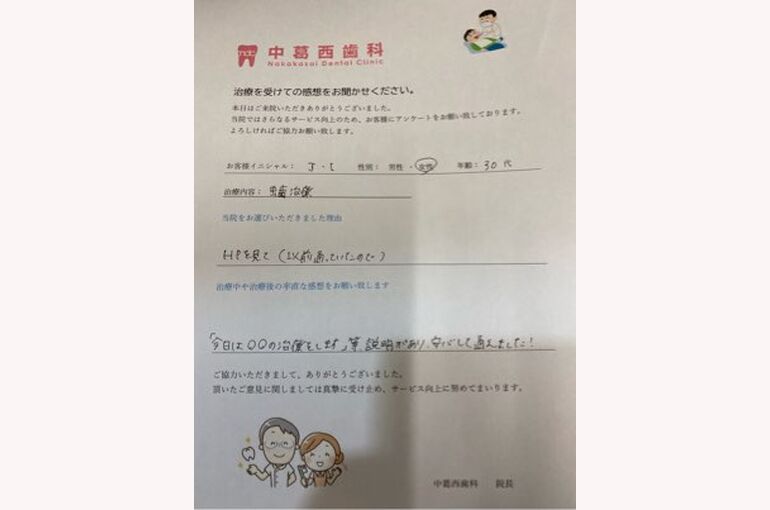 中葛西歯科
Nakakasai Dental Clinic
治療を受けての感想をお聞かせください。
本日はご来院いただきありがとうございました。
当院ではさらなるサービス向上のため、お客様にアンケートをお願い致しております。
よろしければご協力お願い致します。
お客様イニシャル： J・I 性別： 男性・女性 年齢：30代
治療内容： 虫歯治療
当院をお選びいただきました理由
HPを見て（以前通っていたので）
治療中や治療後の率直な感想をお願い致します
「今日は〇〇の治療をします」等、説明があり、安心して通えました！
ご協力いただきまして、ありがとうございました。
頂いたご意見に関しましては真摯に受け止め、サービス向上に努めてまいります。
中葛西歯科 院長